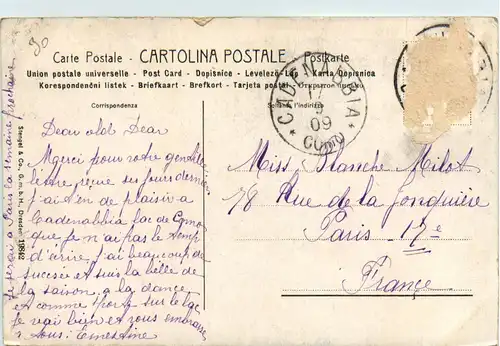 30
Carte Postale - CARTOLINA POSTALE - Postkarte
Union postale universelle - Post Card - Dopisnice - Levelező-Lap - Karta Dopisnica
Korespondenční listek - Briefkaart - Brefkort - Tarjeta postal
Corrispondenza
l'indirizzo
09
Dear old Dear
Merci pour votre gentille
lettre reçue ses jours derniers
j'ai t'en de plaisir a
Cadenabbia lac de Como
que je n'ai pas le temp
d'écrire, j'ai beaucoup de
succés et suis la belle de
la saison, a la dance
et comme sport sur le lac
je vais bien et vous embrasse
Ernestine
Miss Blanche Milot
78 Rue de la Jonquière
Paris 17e
France
Stengel & Co., G. m. b. H., Dresden
je serai a Paris la semaine prochaine